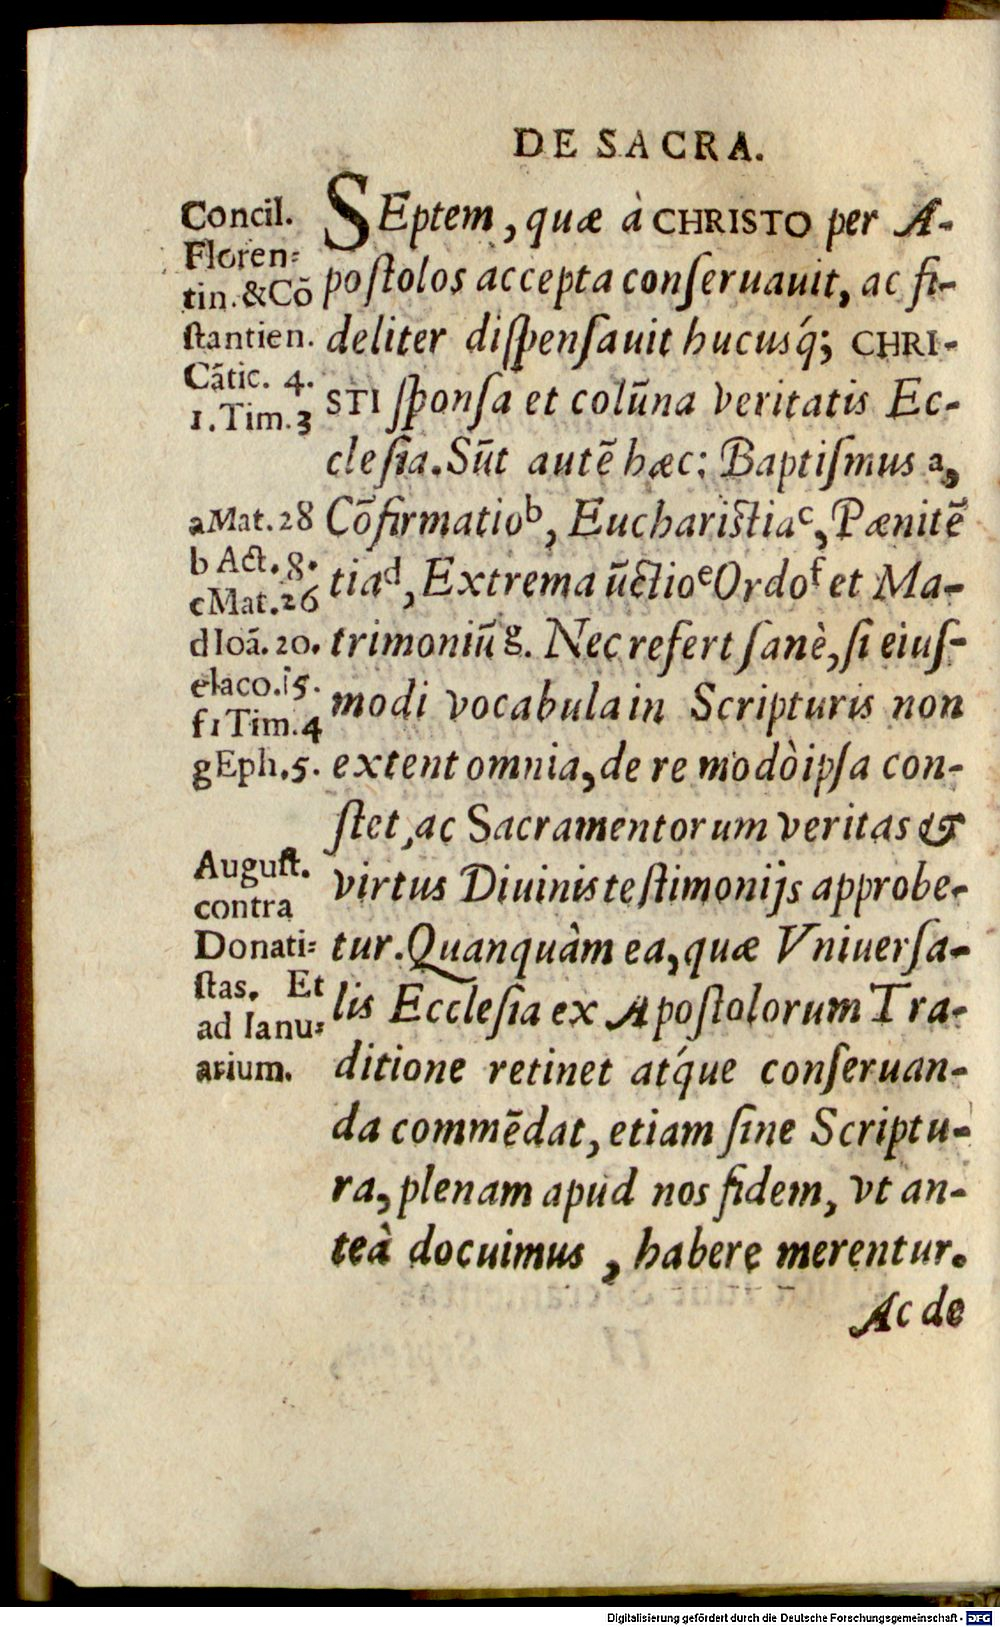 DE SACRA.
Concil.
Floren⸗
tin. &Cõ
ſtantien.
Cãtic. 4.
1. Tim. 3
a Mat. 28
b Act. 8.
c Mat. 26
d Ioã. 20.
e Iaco. i5.
f 1 Tim. 4
g Eph. 5.
Auguſt.
contra
Donati⸗
ſtas. Et
ad Ianu⸗
arium.
SEptem, quæ à CHRISTO per A-
poſtolos accepta conſeruauit, ac fi-
deliter diſpenſauit hucusq́; CHRI-
STI ſponſa et colũna veritatis Ec-
cleſia. Sũt autẽ hæc: Baptiſmus a,
Cõfirmatio b, Euchariſtia c, Pænitẽ
tia d, Extrema ũctio e Ordo f et Ma-
trimoniũ g. Nec refert ſanè, ſi eiuſ-
modi vocabula in Scripturis non
extent omnia, de re modò ipſa con-
ſtet, ac Sacramentorum veritas &
virtus Diuinis teſtimonijs approbe-
tur. Quanquàm ea, quæ Vniuerſa-
lis Eccleſia ex Apoſtolorum Tra-
ditione retinet atq́ue conſeruan-
da commẽdat, etiam ſine Scriptu-
ra, plenam apud nos fidem, vt an-
teà docuimus, habere merentur.
Ac de
Digitalisierung gefördert durch die Deutsche Forschungsgemeinschaft - DFG